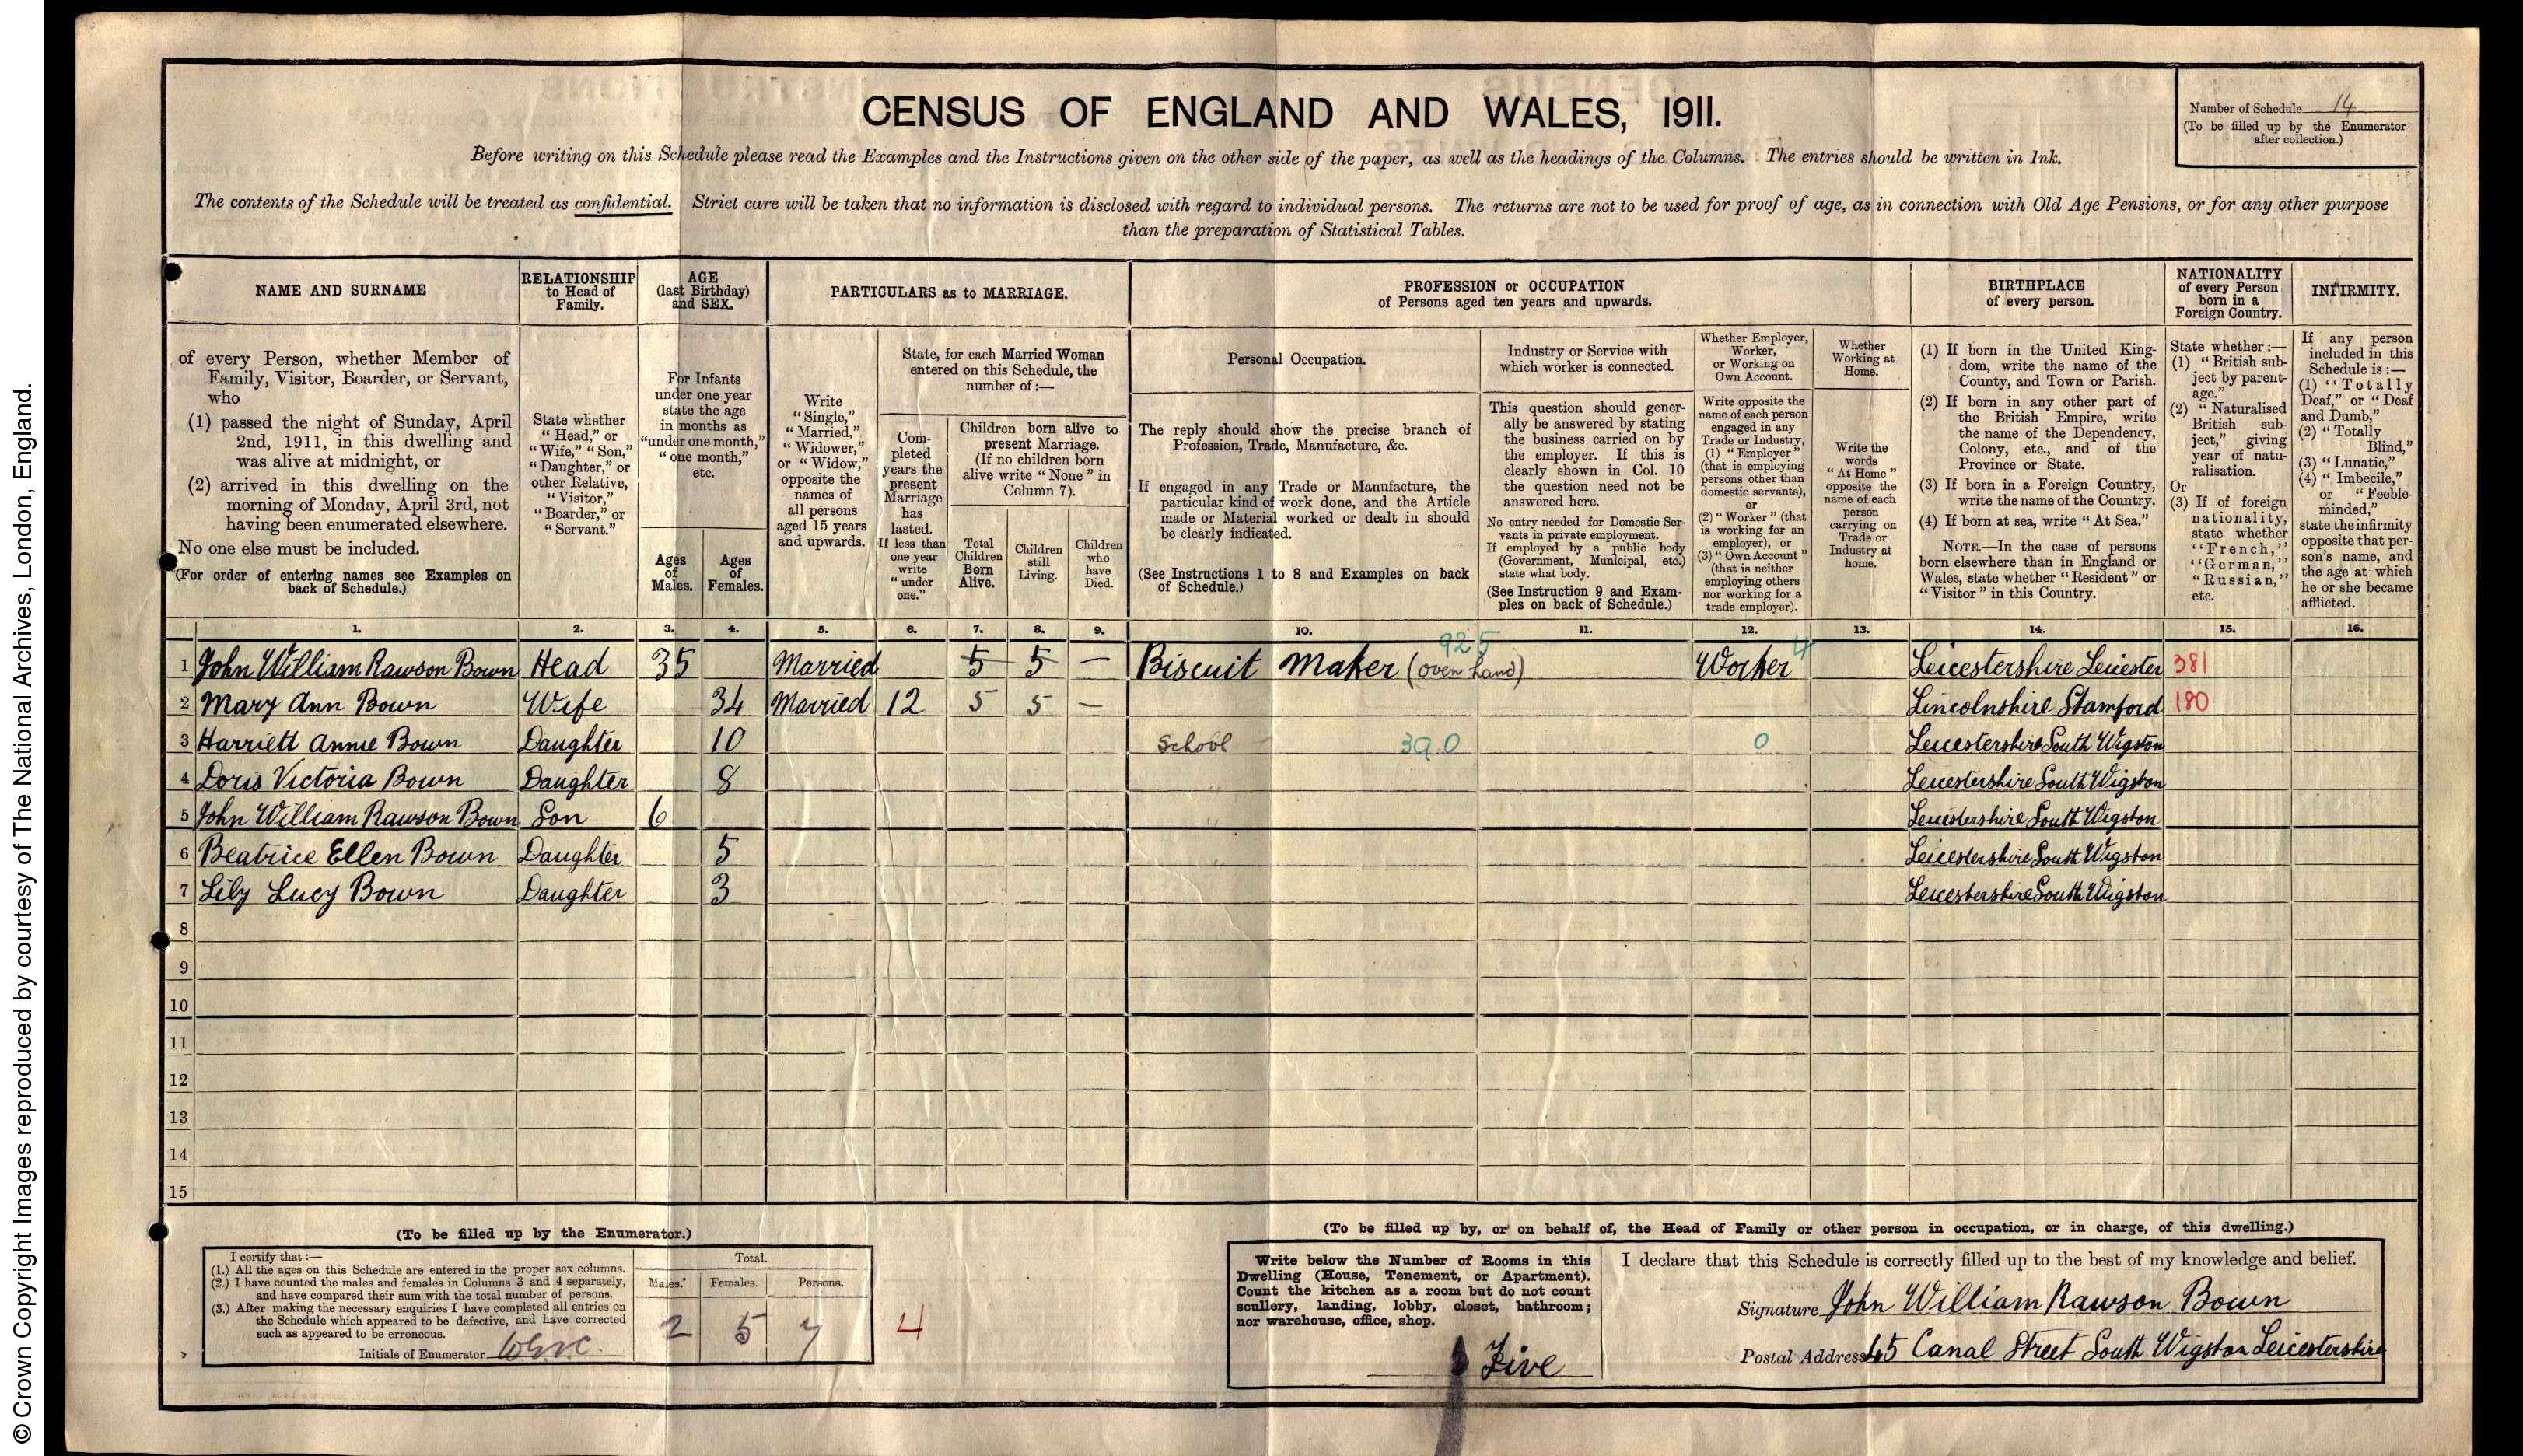 © Crown Copyright Images reproduced by courtesy of The National Archives, London, England.
CENSUS OF ENGLAND AND WALES, 1911.
Number of Schedule 14
(To be filled up by the Enumerator
after collection.)
Before writing on this Schedule please read the Examples and the Instructions given on the other side of the paper, as well as the headings of the Columns. The entries should be written in Ink.
The contents of the Schedule will be treated as confidential. Strict care will be taken that no information is disclosed with regard to individual persons. The returns are not to be used for proof of age, as in connection with Old Age Pensions, or for any other purpose
than the preparation of Statistical Tables.
NAME AND SURNAME
of every Person, whether Member of
Family, Visitor, Boarder, or Servant,
who
(1) passed the night of Sunday, April
2nd, 1911, in this dwelling and
was alive at midnight, or
(2) arrived in this dwelling on the
morning of Monday, April 3rd, not
having been enumerated elsewhere.
No one else must be included.
(For order of entering names see Examples on
back of Schedule.)
RELATIONSHIP
to Head of
Family.
State whether
"Head," or
"Wife," "Son,"
"Daughter," or
other Relative,
"Visitor,"
"Boarder," or
"Servant."
AGE
(last Birthday)
and SEX.
For Infants
under one year
state the age
in months as
"under one month,"
"one month,"
etc.
Ages
of
Males.
Ages
of
Females.
PARTICULARS as to MARRIAGE.
Write
"Single,"
"Married,"
"Widower,"
or "Widow,"
opposite the
names of
all persons
aged 15 years
and upwards.
State, for each Married Woman
entered on this Schedule, the
number of :—
Com-
pleted
years the
present
Marriage
has
lasted.
If less than
one year
write
"under
one."
Children born alive to
present Marriage.
(If no children born
alive write "None" in
Column 7).
Total
Children
Born
Alive.
Children
still
Living.
Children
who
have
Died.
PROFESSION or OCCUPATION
of Persons aged ten years and upwards.
Personal Occupation.
The reply should show the precise branch of
Profession, Trade, Manufacture, &c.
If engaged in any Trade or Manufacture, the
particular kind of work done, and the Article
made or Material worked or dealt in should
be clearly indicated.
(See Instructions 1 to 8 and Examples on back
of Schedule.)
Industry or Service with
which worker is connected.
This question should gener-
ally be answered by stating
the business carried on by
the employer. If this is
clearly shown in Col. 10
the question need not be
answered here.
No entry needed for Domestic Ser-
vants in private employment.
If employed by a public body
(Government, Municipal, etc.)
state what body.
(See Instruction 9 and Exam-
ples on back of Schedule.)
Whether Employer,
Worker,
or Working on
Own Account.
Write opposite the
name of each person
engaged in any
Trade or Industry,
(1) "Employer"
(that is employing
persons other than
domestic servants),
or
(2) "Worker" (that
is working for an
employer), or
(3) "Own Account"
(that is neither
employing others
nor working for a
trade employer).
Whether
Working at
Home.
Write the
words
"At Home"
opposite the
name of each
person
carrying on
Trade or
Industry at
home.
BIRTHPLACE
of every person.
(1) If born in the United King-
dom, write the name of the
County, and Town or Parish.
(2) If born in any other part of
the British Empire, write
the name of the Dependency,
Colony, etc., and of the
Province or State.
(3) If born in a Foreign Country,
write the name of the Country.
(4) If born at sea, write "At Sea."
NOTE.—In the case of persons
born elsewhere than in England or
Wales, state whether "Resident" or
"Visitor" in this Country.
NATIONALITY
of every Person
born in a
Foreign Country.
State whether :—
(1) "British sub-
ject by parent-
age."
(2) "Naturalised
British sub-
ject," giving
year of natu-
ralisation.
Or
(3) If of foreign
nationality,
state whether
"French,"
"German,"
"Russian,"
etc.
INFIRMITY.
If any person
included in this
Schedule is :—
(1) "Totally
Deaf," or "Deaf
and Dumb,"
(2) "Totally
Blind,"
(3) "Lunatic,"
(4) "Imbecile,"
or "Feeble-
minded,"
state the infirmity
opposite that per-
son's name, and
the age at which
he or she became
afflicted.
1. 2. 3. 4. 5. 6. 7. 8. 9. 10. 11. 12. 13. 14. 15. 16.
925 4
1 John William Rawson Bown Head 35 Married 5 5 — Biscuit Maker (oven hand) Worker Leicestershire Leicester 381
2 Mary Ann Bown Wife 34 Married 12 5 5 — Lincolnshire Stamford 180
3 Harriett Annie Bown Daughter 10 School 390 0 Leicestershire South Wigston
4 Doris Victoria Bown Daughter 8 Leicestershire South Wigston
5 John William Rawson Bown Son 6 Leicestershire South Wigston
6 Beatrice Ellen Bown Daughter 5 Leicestershire South Wigston
7 Lily Lucy Bown Daughter 3 Leicestershire South Wigston
8
9
10
11
12
13
14
15
(To be filled up by the Enumerator.)
I certify that :—
(1.) All the ages on this Schedule are entered in the proper sex columns.
(2.) I have counted the males and females in Columns 3 and 4 separately,
and have compared their sum with the total number of persons.
(3.) After making the necessary enquiries I have completed all entries on
the Schedule which appeared to be defective, and have corrected
such as appeared to be erroneous.
Initials of Enumerator
Total.
Males. Females. Persons.
2 5 7
4
(To be filled up by, or on behalf of, the Head of Family or other person in occupation, or in charge, of this dwelling.)
Write below the Number of Rooms in this
Dwelling (House, Tenement, or Apartment).
Count the kitchen as a room but do not count
scullery, landing, lobby, closet, bathroom;
nor warehouse, office, shop.
Five
I declare that this Schedule is correctly filled up to the best of my knowledge and belief.
Signature John William Rawson Bown
Postal Address 45 Canal Street South Wigston Leicestershire